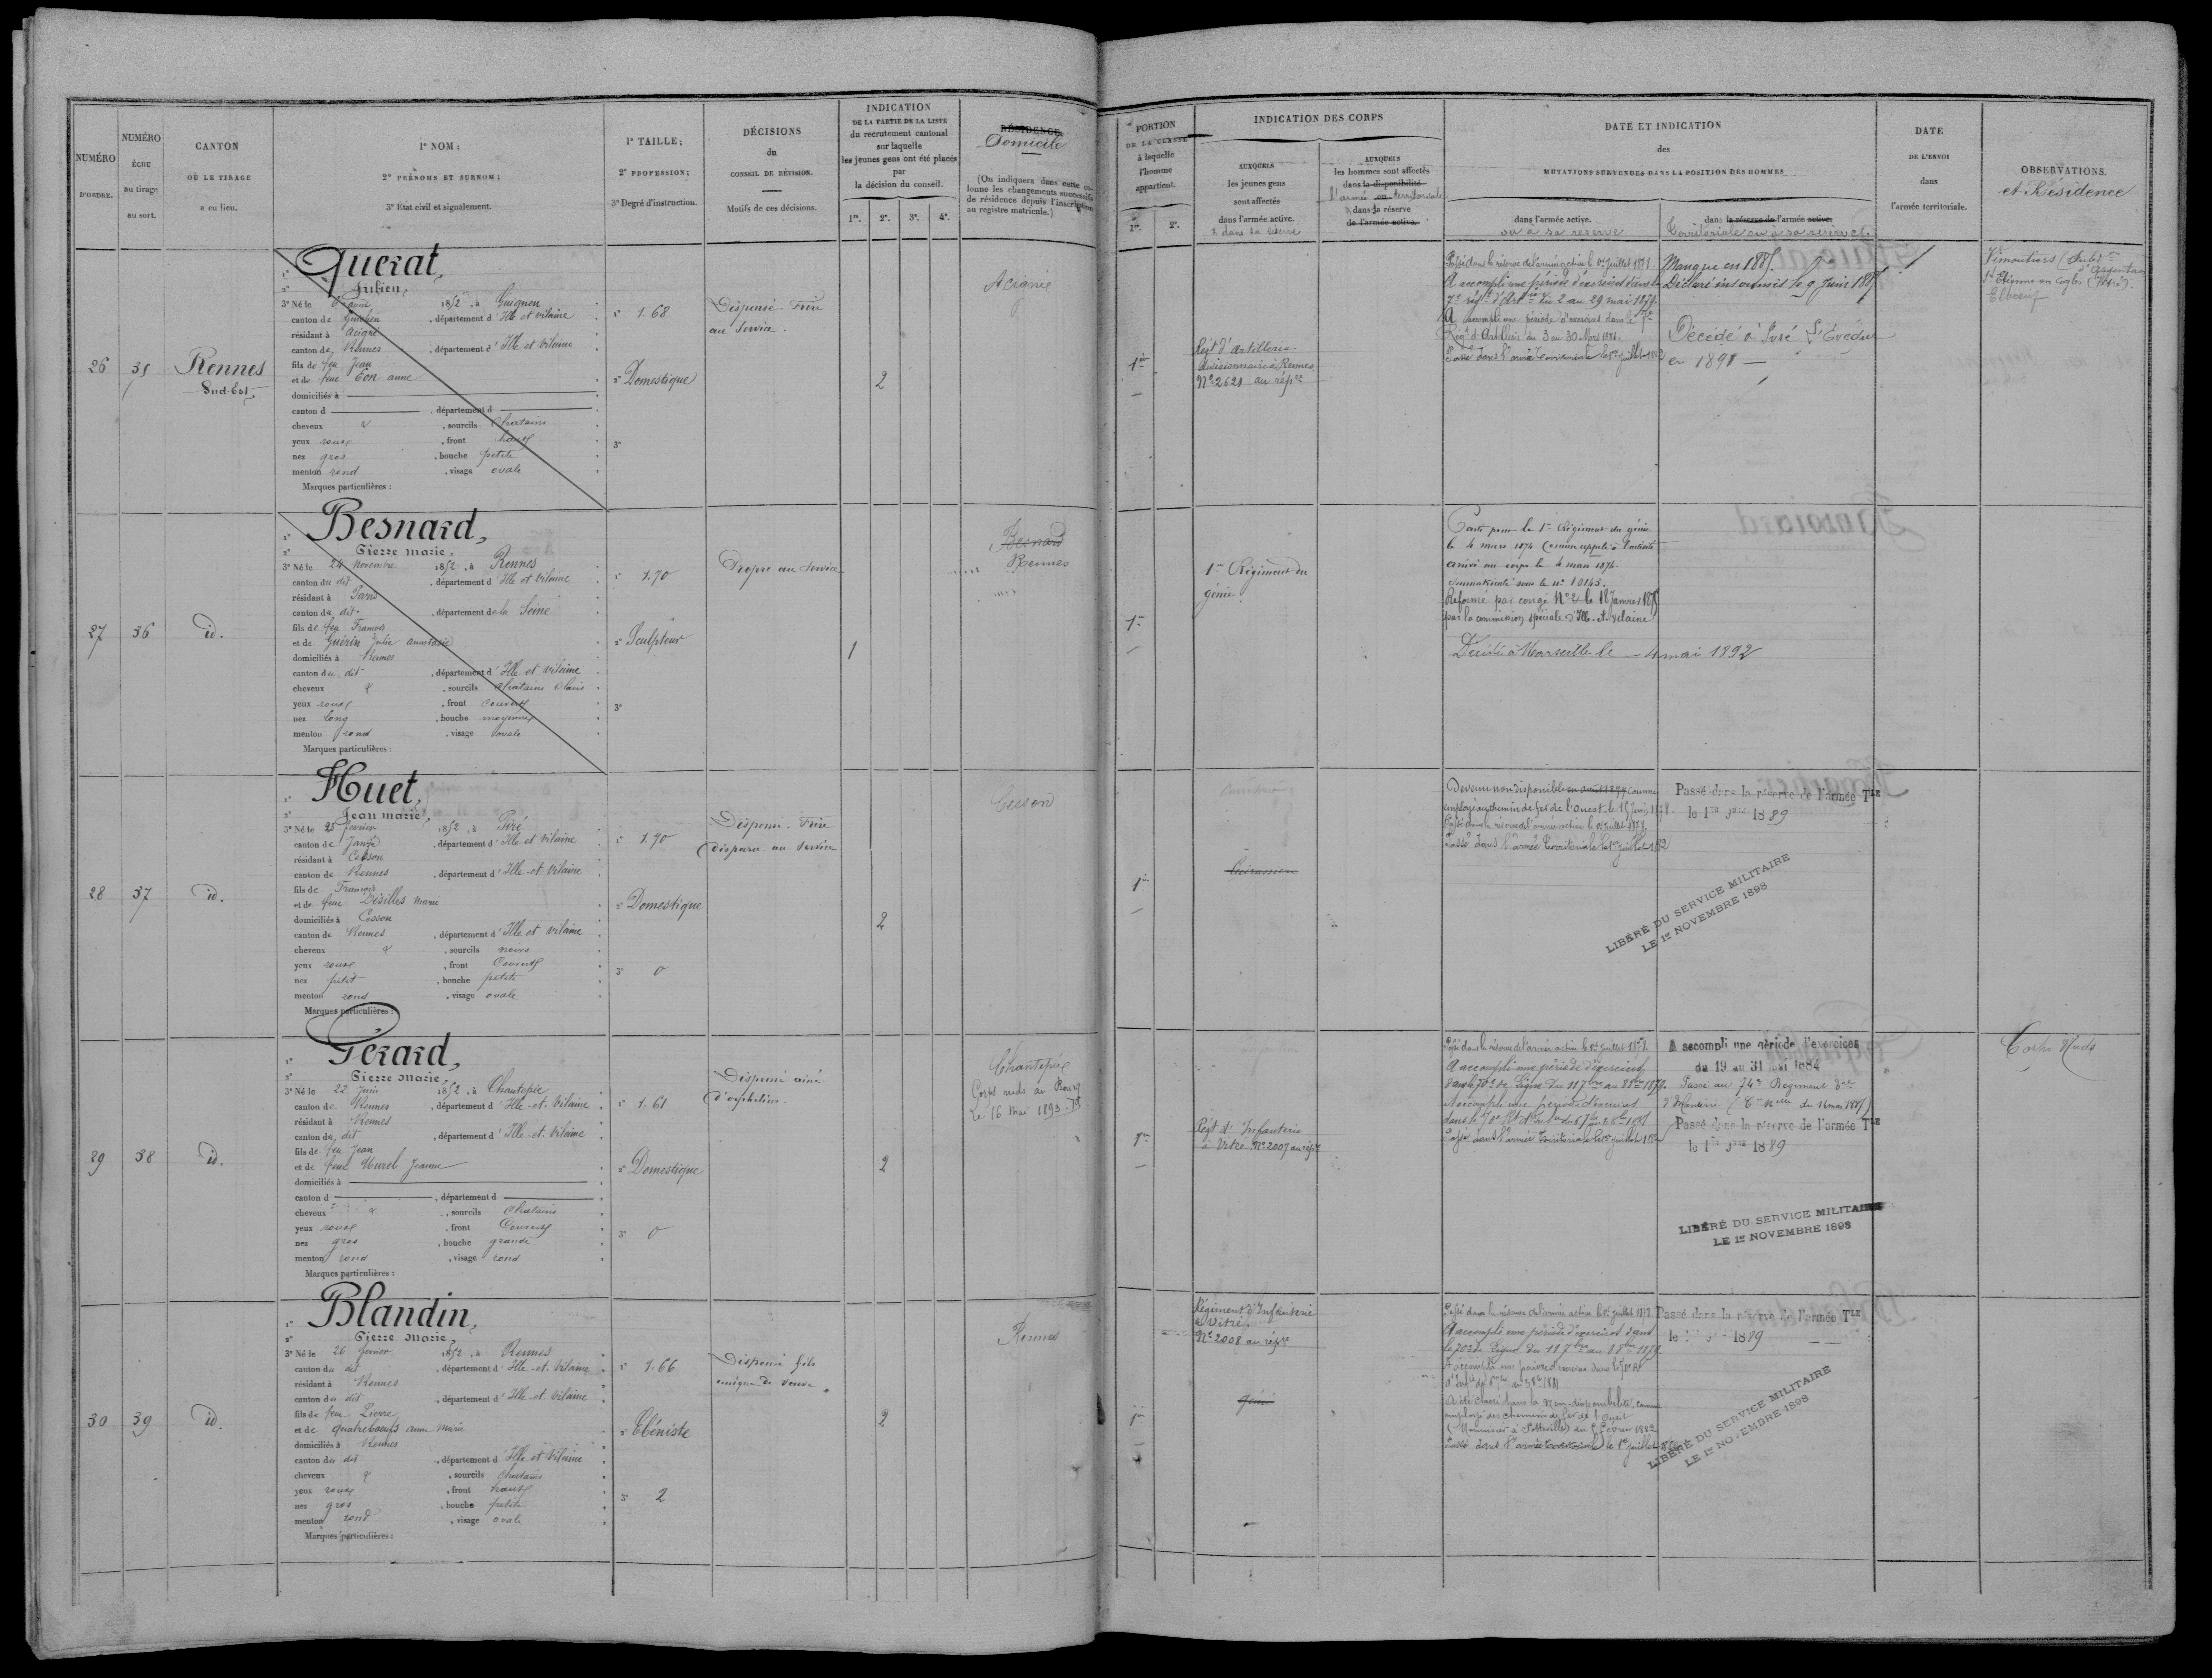 NUMÉRO
D'ORDRE.
NUMÉRO
ÉCHU
au tirage
au sort.
CANTON
OÙ LE TIRAGE
a eu lieu.
1º NOM;
2º PRÉNOMS ET SURNOM;
3º État civil et signalement.
1º TAILLE;
2º PROFESSION;
3º Degré d'instruction.
DÉCISIONS
du
CONSEIL DE RÉVISION.
Motifs de ces décisions.
INDICATION
DE LA PARTIE DE LA LISTE
du recrutement cantonal
sur laquelle
les jeunes gens ont été placés
par
la décision du conseil.
1re. 2e. 3e. 4e.
RÉSIDENCE.
Domicile
(On indiquera dans cette colonne les changements successifs
de résidence depuis l'inscription
au registre matricule.)
PORTION
DE LA CLASSE
à laquelle
l'homme
appartient.
1re. 2e.
INDICATION DES CORPS
AUXQUELS
les jeunes gens
sont affectés
dans l'armée active.
& dans la réserve
AUXQUELS
les hommes sont affectés
dans la disponibilité
l'armée territoriale
dans la réserve
de l'armée active.
DATE ET INDICATION
des
MUTATIONS SURVENUES DANS LA POSITION DES HOMMES
dans l'armée active.
ou à sa réserve
dans la réserve de l'armée active.
territoriale ou à sa réserve
DATE
DE L'ENVOI
dans
l'armée territoriale.
OBSERVATIONS.
et Résidence
26
35
Rennes
Sud-Est
1º Querat,
2º Julien,
3º Né le août 1852, à Guignen
canton de Guichen, département d'Ille et vilaine
résidant à Acigné
canton de Rennes, département d'Ille et vilaine
fils de feu Jean
et de feue Eon anne
domiciliés à
canton d , département d
cheveux & , sourcils chatains
yeux roux , front haut
nez gros , bouche petite
menton rond , visage ovale
Marques particulières :
1º 1.68
2º Domestique
3º
Dispensé. Frère
au Service.
2
Acigné
1re
Régt d'artillerie
divisionnaire à Rennes
Nº 2621 au répre
Passé dans la réserve de l'armée active le 1er juillet 1878.
A accompli une période d'exercices dans le
7e régt d'Artrie du 2 au 29 mai 1879.
A accompli une période d'exercices dans le 7e
Régt d'Artillerie du 3 au 30 Mars 1881.
Passé dans l'armée territoriale le 1er juillet 1882
Manque en 1885.
Déclaré insoumis le 9 Juin 1885
Décédé à
en 1891
Vimoutiers
d'Argentan
St Etienne en Coglès
Elbeuf
27
36
id.
1º Besnard,
2º Pierre Marie,
3º Né le 24 Novembre 1852, à Rennes
canton du dit, département d'Ille et vilaine
résidant à Paris
canton du dit, département de la Seine
fils de feu François
et de Guérin Julie anastasie
domiciliés à Rennes
canton du dit, département d'Ille et vilaine
cheveux & , sourcils chatains clairs
yeux roux , front couvert
nez long , bouche moyenne
menton rond , visage ovale
Marques particulières :
1º 1.70
2º Sculpteur
3º
Propre au Service
1
Besnard
Rennes
1re
1er Régiment du
génie
Parti pour le 1er Régiment du génie
le 4 mars 1874 Comme appelé
arrivé au corps le 4 mars 1874.
immatriculé sous le nº 10143.
Réformé par congé Nº 2 le 18 Janvier 1875
par la commission spéciale d'Ille-et-Vilaine
Décédé à Marseille le 4 mai 1892
28
37
id.
1º Huet,
2º Jean Marie,
3º Né le 25 février 1852, à Piré
canton de Janzé, département d'Ille et vilaine
résidant à Cesson
canton de Rennes, département d'Ille et Vilaine
fils de François
et de feue Désilles Marie
domiciliés à Cesson
canton de Rennes, département d'Ille et vilaine
cheveux & , sourcils noirs
yeux roux , front Couvert
nez petit , bouche petite
menton rond , visage ovale
Marques particulières :
1º 1.70
2º Domestique
3º 0
Dispensé. Frère
disparu au Service
2
Cesson
1re
Devenu non disponible comme
employé au chemin de fer de l'Ouest le 15 juin 1878.
Passé dans la réserve de l'armée active le 1er juillet 1878.
Passé dans l'armée territoriale le 1er juillet 1882
Passé dans la réserve de l'armée Tle
le 1er 9bre 1889
LIBÉRÉ DU SERVICE MILITAIRE
LE 1er NOVEMBRE 1898
29
38
id.
1º Gérard,
2º Pierre Marie,
3º Né le 22 Juin 1852, à Chantepie
canton de Rennes, département d'Ille-et-Vilaine
résidant à Rennes
canton du dit, département d'Ille-et-Vilaine
fils de feu Jean
et de feue Murel Jeanne
domiciliés à
canton d , département d
cheveux & , sourcils chatains
yeux roux , front Couvert
nez gros , bouche grande
menton rond , visage rond
Marques particulières :
1º 1.61
2º Domestique
3º 0
Dispensé ainé
d'orphelins.
2
Chantepie
Corps nuds au Bourg
le 16 Mai 1893
1re
Régt d'Infanterie
à Vitré Nº 2007 au répre
Passé dans la réserve de l'armée active le 1er juillet 1878.
A accompli une période d'exercices
dans le 70e de Ligne du 11 7bre au 8 8bre 1879.
A accompli une période d'exercices
Passé dans l'armée territoriale le 1er juillet 1882
A accompli une période d'exercices
du 19 au 31 mai 1884
Passé au 74e Régiment tal
d'Infanterie
Passé dans la réserve de l'armée Tle
le 1er 9bre 1889
LIBÉRÉ DU SERVICE MILITAIRE
LE 1er NOVEMBRE 1898
Corps Nuds
30
39
id.
1º Blandin,
2º Pierre Marie,
3º Né le 26 février 1852, à Rennes
canton du dit, département d'Ille-et-Vilaine
résidant à Rennes
canton du dit, département d'Ille-et-Vilaine
fils de feu Pierre
et de Quatreboeufs anne Marie
domiciliés à Rennes
canton du dit, département d'Ille et Vilaine
cheveux & , sourcils chatains
yeux roux , front haut
nez gros , bouche petite
menton rond , visage ovale
Marques particulières :
1º 1.66
2º Ebéniste
3º 2
Dispensé fils
unique de veuve
2
Rennes
1re
Régiment d'Infanterie
à Vitré.
Nº 2008 au répre
Génie
Passé dans la réserve de l'armée active le 1er juillet 1878.
A accompli une période d'exercices dans
le 70e de Ligne du 11 7bre au 8 8bre 1879.
A accompli une période d'exercices dans le 70e Rt
A été classé dans la Non-disponibilité comme
employé des chemins de fer de l'Ouest
(Menuisier à Sotteville) du Février 1882
Passé dans l'armée territoriale le 1er juillet 1882
Passé dans la réserve de l'armée Tle
le 1889
LIBÉRÉ DU SERVICE MILITAIRE
LE 1er NOVEMBRE 1898